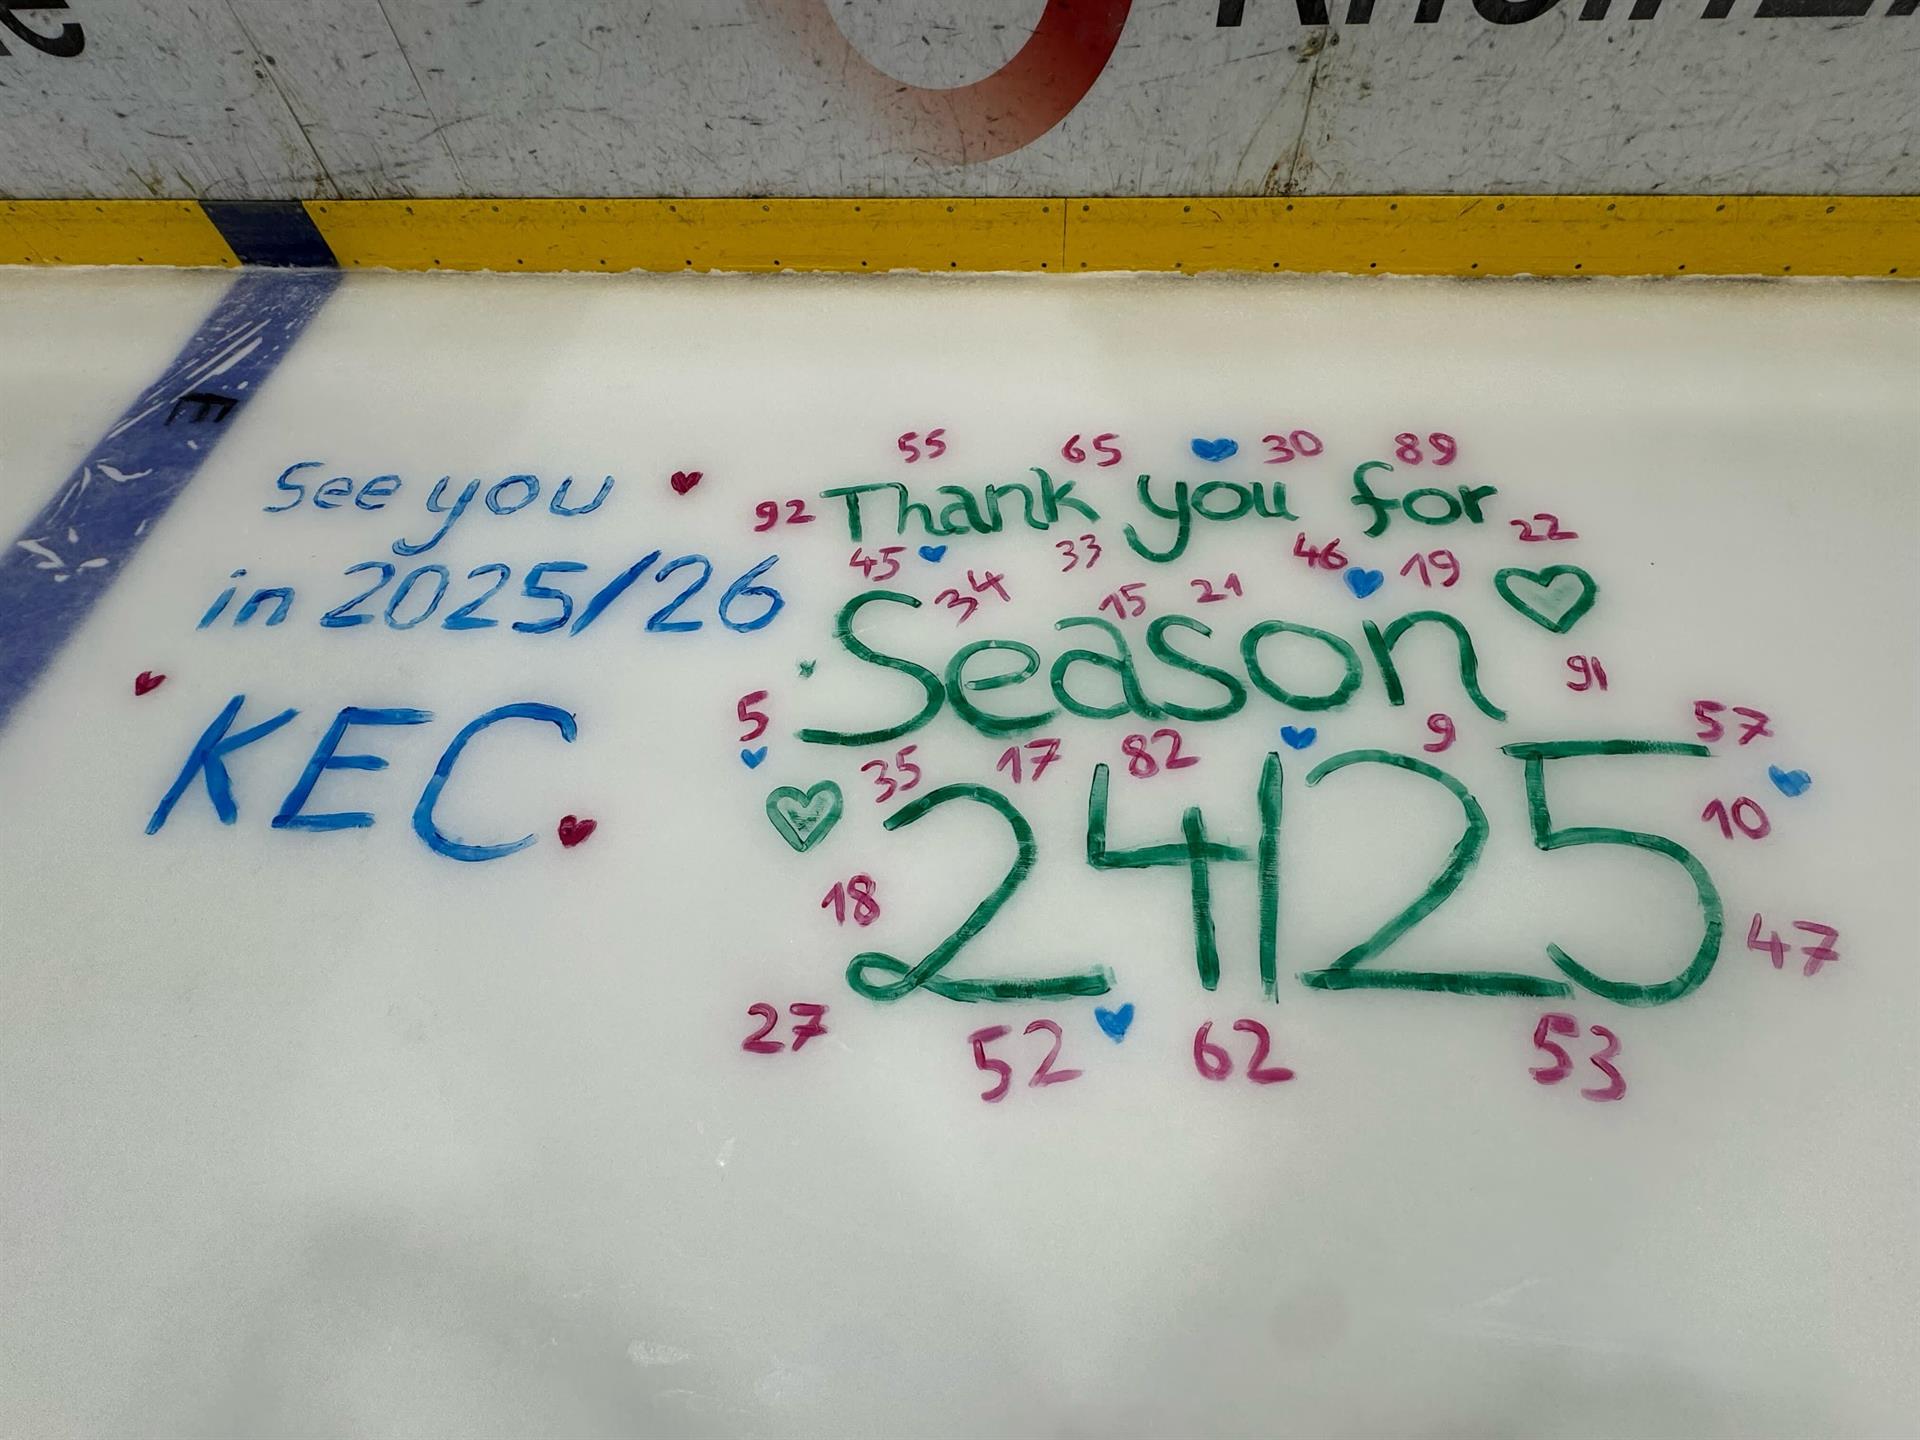 E
See you
in 2025/26
KEC
55 65 30 89
92 Thank you for 22
45 33 46 19
34 15 21
Season
91
5 35 17 82 9 57
24/25
10
18
47
27 52 62 53